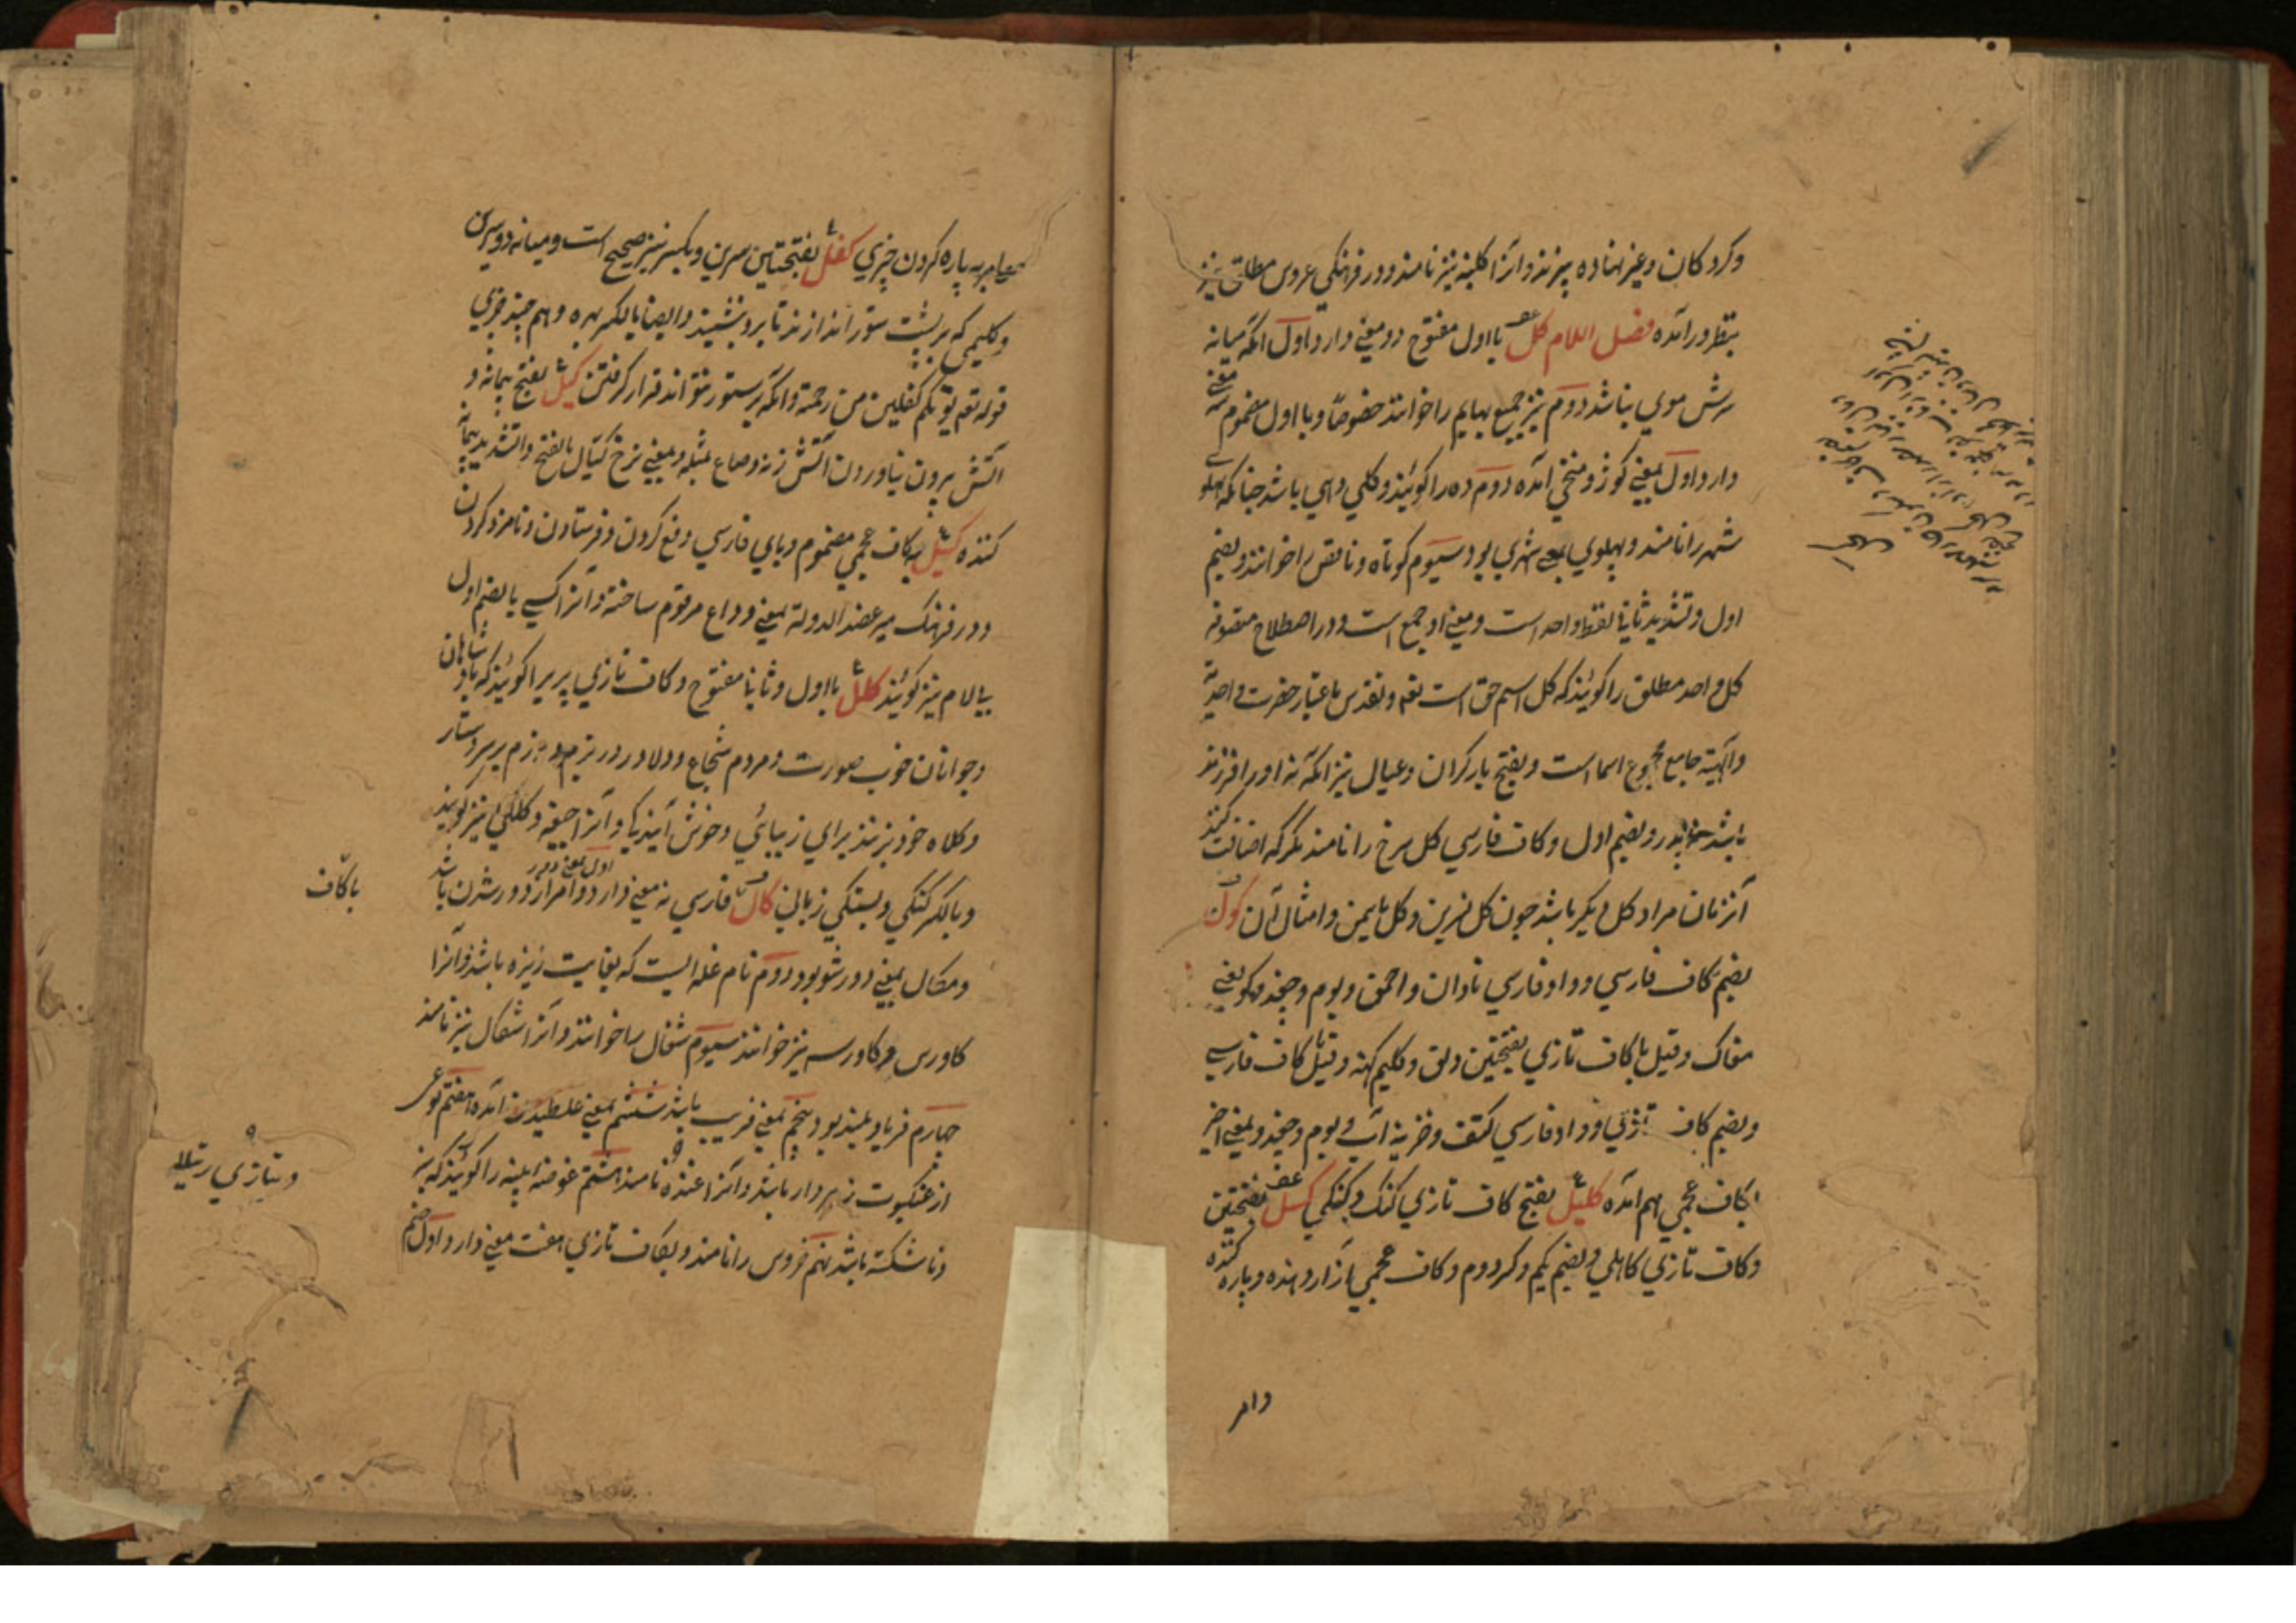 وکردکان وغیر نهاده پزند وانرا کلینه نیز نامند ودر فرهنگی عروس مطلق نیز
بنظر درآمده فصل اللام کل بااول مفتوح دو معنی دارد اول آنکه میانه
سرش موی نباشد دوم نیز جمیع بهایم را خوانند خصوصا وبا اول مضموم سه معنی
دارد اول بمعنی کوژ و منحنی آمده دوم ده را کویند وکلی دهی باشد چنانکه پهلو
شهر را نامند و پهلوی بمعنی شهری بود سیوم کوتاه وناقص را خوانند وبضم
اول وتشدید ثانی لفظ واحد است ومعنی او جمع است ودر اصطلاح متصوفه
کل واحد مطلق را کویند که کل اسم حق است تعه وتقدس باعتبار حضرت واحدیة
والهیته جامع مجموع اسما است وبفتح بار کران وعیال نیز آنکه نه او را فرزند
باشد پدر وبضم اول وکاف فارسی کل سرخ را نامند مکر که اضافت کنند
آنزمان مراد کل دیکر باشد چون کل نسرین وکل یاسمین وامثال آن کول
بضم کاف فارسی وواو فارسی نادان واحمق وبوم وچغد وکو یعنی
مغاک وقیل با کاف تازی بفتحتین دلق وکلیم کهنه وقیل کاف فارسی
وبضم کاف تازی وواو فارسی کتف وخزینه آب وبوم وچغد وبمعنی اخیر
بکاف عجمی هم آمده کلیل بفتح کاف تازی کنک وکنکی کسل بفتحتین
وکاف تازی کاهلی وبضم یکم وکسر دوم وکاف عجمی آزار دهنده وپاره کننده
وامر
وامر به پاره کردن چیزی کفل بفتحتین سرین وبکسر نیز صحیح است ومیانه دو سرین
وکلیمی که بر پشت ستور اندازند تا برو نشینند وایضا بالکسر بهره وهم چند چیزی
قوله تعه یوتکم کفلین من رحمته وآنکه بر ستور نتواند قرار کرفتن کیل بفتح پیمانه و
آتش بیرون نیاوردن آتش زنه وصاع مثله وبمعنی نرخ کیال بالفتح والتشدید پیمانه
کننده کسیل بکاف عجمی مضموم وبای فارسی دفع کردن وفرستادن ونامزد کردن
ودر فرهنک میر عضد الدوله بمعنی وداع مرقوم ساخته وآنرا کسی بالضم اول
بیالام نیز کویند کلل بااول وثانی مفتوح وکاف تازی پریرا کویند که پادشاهان
وجوانان خوب صورت ومردم شجاع ودلاور در بزم ورزم بر سر دستار
وکلاه خود بزنند برای زیبائی وخوش آیندکی وآنرا جیغه وکلکی نیز کویند
وبالکسر کنکی وبستکی زبان کال با کاف فارسی نه معنی دارد اول بمعنی دور وامر از دور شدن باشد
ومکال بمعنی دور شو بود دوم نام غله ایست که بغایت ریزه باشد وآنرا
کاورس وکاورسه نیز خوانند سیوم شغال را خوانند وآنرا شکال نیز نامند
چهارم فریاد بلند بود پنجم بمعنی فریب باشد ششم بمعنی غلطیدن آمده هفتم نوعی
از عنکبوت زهردار باشد وآنرا غنده نامند هشتم غوضه پنبه را کویند که نه
وناشکسته باشد نهم خروس را نامند وبکاف تازی هفت معنی دارد اول خم
باکاف
وبتازی رتیلا